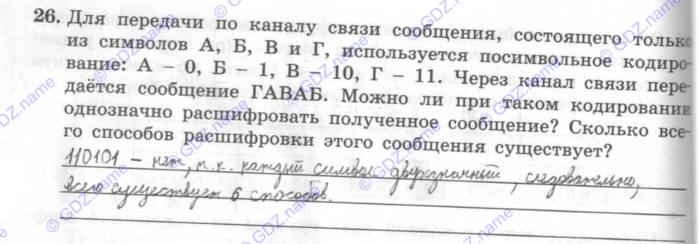 26. Для передачи по каналу связи сообщения, состоящего только
из символов А, Б, В и Г, используется посимвольное кодиро-
вание: А – 0, Б – 1, В – 10, Г – 11. Через канал связи пере-
даётся сообщение ГАВАБ. Можно ли при таком кодировании
однозначно расшифровать полученное сообщение? Сколько все-
го способов расшифровки этого сообщения существует?
110101 – нет, т.к. каждый символ двузначный, следовательно,
всего существует 6 способов.
© GDZ.name